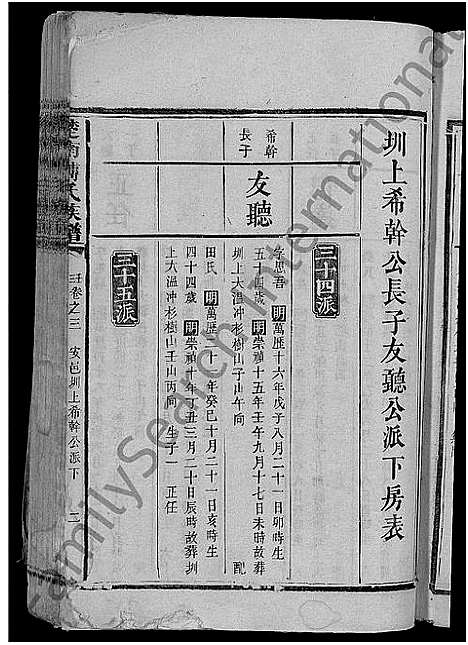 圳上希幹公長子友聽公派下房表
三十四派
希幹
長子
友聽
字思喜 明萬歷十六年戊子八月二十一日卯時生
五十四歲 明崇禎十五年壬午九月十七日未時故葬
圳上大溫冲杉樹山子山午向 配
田氏 明萬歷二十一年癸巳十月二十一日亥時生
四十四歲 明崇禎十年丁丑三月二十日辰時故葬圳
上大溫冲杉樹山壬山丙向 生子一 正任
三十五派
氏族譜
卷之三 安邑圳上希幹公派下
FamilySearch International